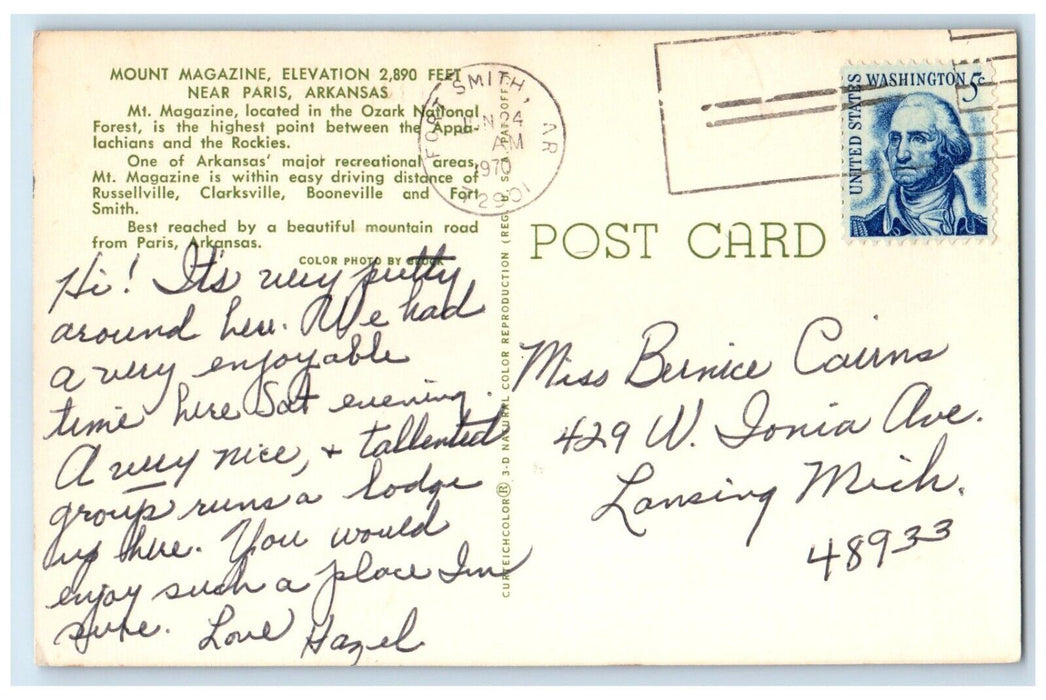 MOUNT MAGAZINE, ELEVATION 2,890 FEET
NEAR PARIS, ARKANSAS
Mt. Magazine, located in the Ozark National
Forest, is the highest point between the Appa-
lachians and the Rockies.
One of Arkansas' major recreational areas,
Mt. Magazine is within easy driving distance of
Russellville, Clarksville, Booneville and Fort
Smith.
Best reached by a beautiful mountain road
from Paris, Arkansas.
COLOR PHOTO BY
Hi! It's very pretty
around here. We had
a very enjoyable
time here Sat evening.
A very nice, + tallented
group runs a lodge
up here. You would
enjoy such a place Im
sure. Love Hazel
CURTEICHCOLOR® 3-D NATURAL CORLOR REPRODUCTION (REG. U.S.A. PAT. OFF.)
FORT SMITH, AR
JUN 24
AM
1970
72901
POST CARD
UNITED STATES
WASHINGTON 5c
Miss Bernice Cairns
429 W. Ionia Ave.
Lansing Mich.
48933